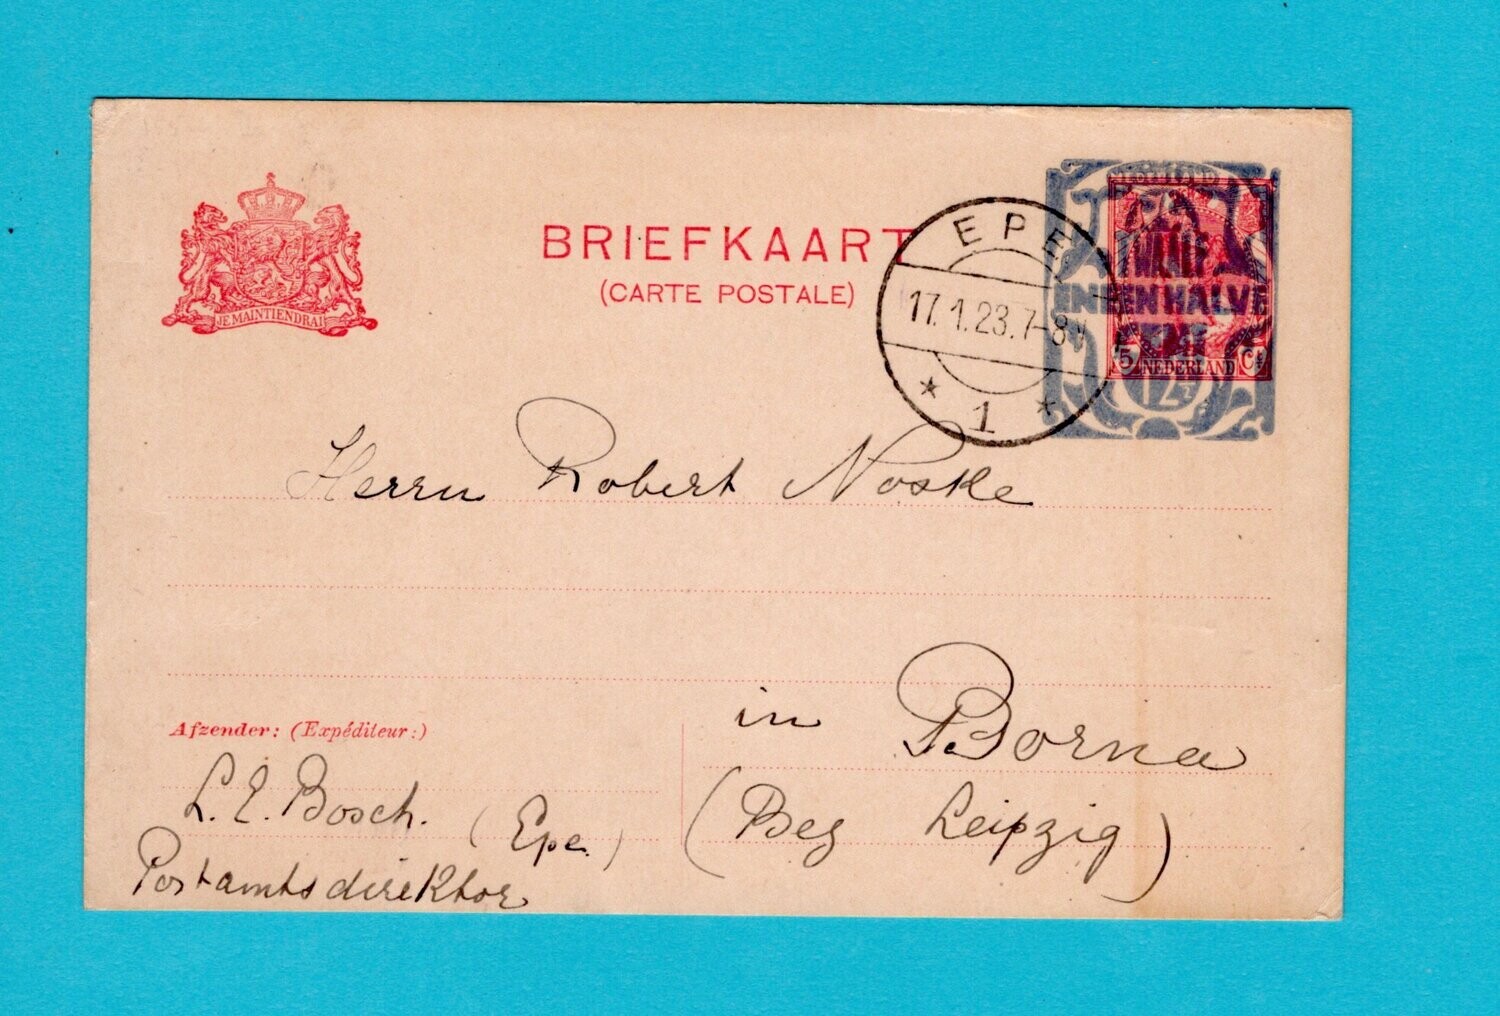 JE MAINTIENDRAI
BRIEFKAART
(CARTE POSTALE)
EPE
17.1.23.7-8V
* 1 *
TWAALF
EN EEN HALVE
CENT
5 NEDERLAND Ct
12½
Herrn Robert Noske
in Borna
(Bez Leipzig)
Afzender: (Expéditeur:)
L. E. Bosch. (Epe.)
Postamtsdirektor